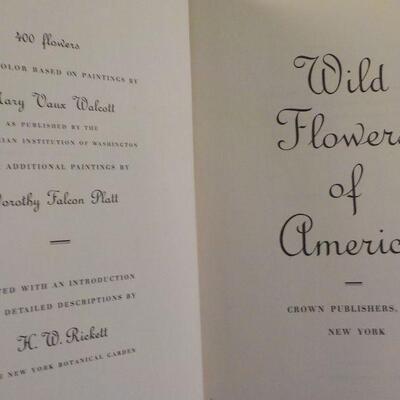 400 flowers
COLOR BASED ON PAINTINGS BY
Mary Vaux Walcott
AS PUBLISHED BY THE
IAN INSTITUTION OF WASHINGTON
ADDITIONAL PAINTINGS BY
Dorothy Falcon Platt
TED WITH AN INTRODUCTION
DETAILED DESCRIPTIONS BY
H. W. Rickett
NEW YORK BOTANICAL GARDEN
Wild
Flowers
of
Americ
CROWN PUBLISHERS,
NEW YORK